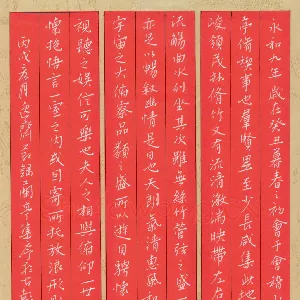 永和九年歲在癸丑暮春之初會于會稽山
亭脩禊事也羣賢畢至少長咸集此地
峻領茂林脩竹又有清流激湍映帶左右
流觴曲水列坐其次雖無絲竹管弦之盛一
亦足以暢敘幽情是日也天朗氣清惠風和
宇宙之大俯察品類之盛所以遊目騁懷
視聽之娛信可樂也夫人之相與俯仰一世
懷抱悟言一室之內或因寄所託放浪形骸
丙戌春月蘭亭集序於古彭